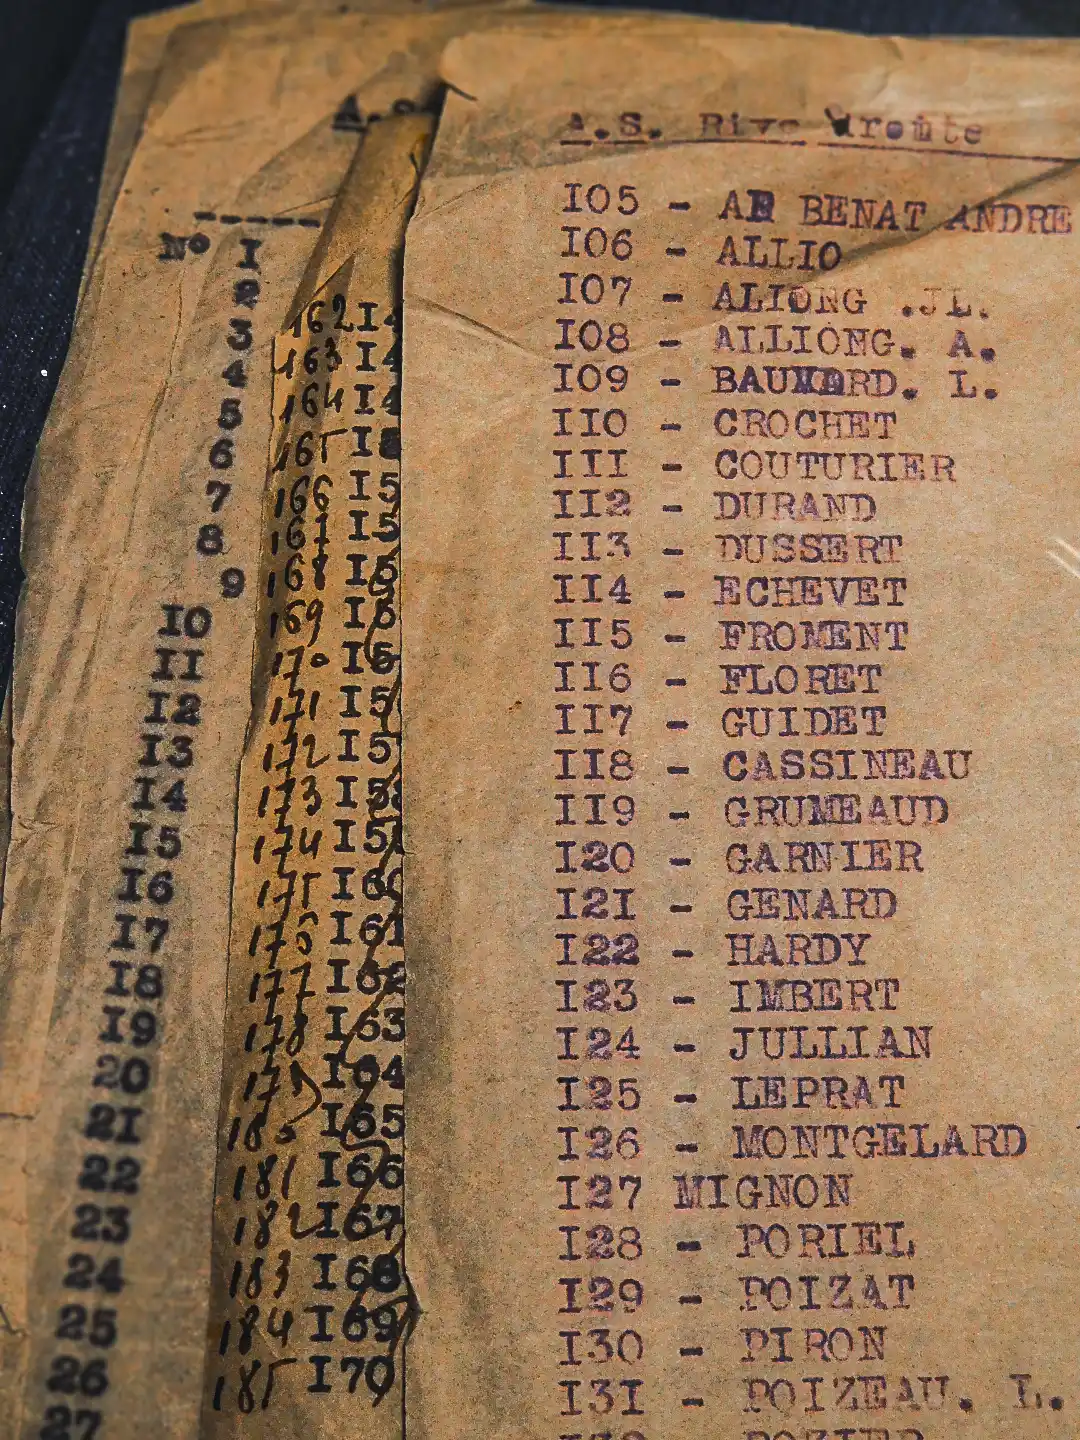 A.S. Rive
I05 - BENAT ANDRE
I06 - ALLIO
I07 - ALIONG .JL.
I08 - ALLIONG. A.
I09 - L.
II0 - CROCHET
III - COUTURIER
II2 - DURAND
II3 - DUSSERT
II4 - ECHEVET
II5 - FROMENT
II6 - FLORET
II7 - GUIDET
II8 - CASSINEAU
II9 - GRUMEAUD
I20 - GARNIER
I2I - GENARD
I22 - HARDY
I23 - IMBERT
I24 - JULLIAN
I25 - LEPRAT
I26 - MONTGELARD
I27 MIGNON
I28 - PORIEL
I29 - POIZAT
I30 - PIRON
I3I - POIZEAU. L.
N° I
2
3
4
5
6
7
8
9
I0
II
I2
I3
I4
I5
I6
I7
I8
I9
20
2I
22
23
24
25
26
27
162
163
164
165
166
167
168
169
170
171
172
173
174
175 I60
176 I61
177 I62
178 I63
179 I64
180 I65
181 I66
182 I67
183 I68
184 I69
185 I70